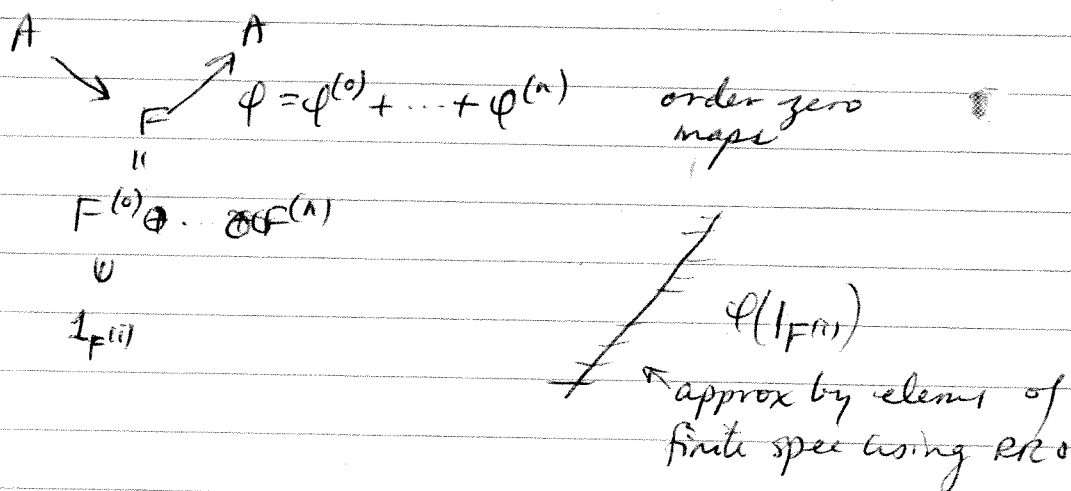 A A
F φ = φ^(0) + ⋯ + φ^(n) order zero
maps
||
F^(0) ⊕ ⋯ ⊕ F^(n)
∪
1_F^(i)
φ(1_F^(i))
approx by elems of
finite spec using RR0